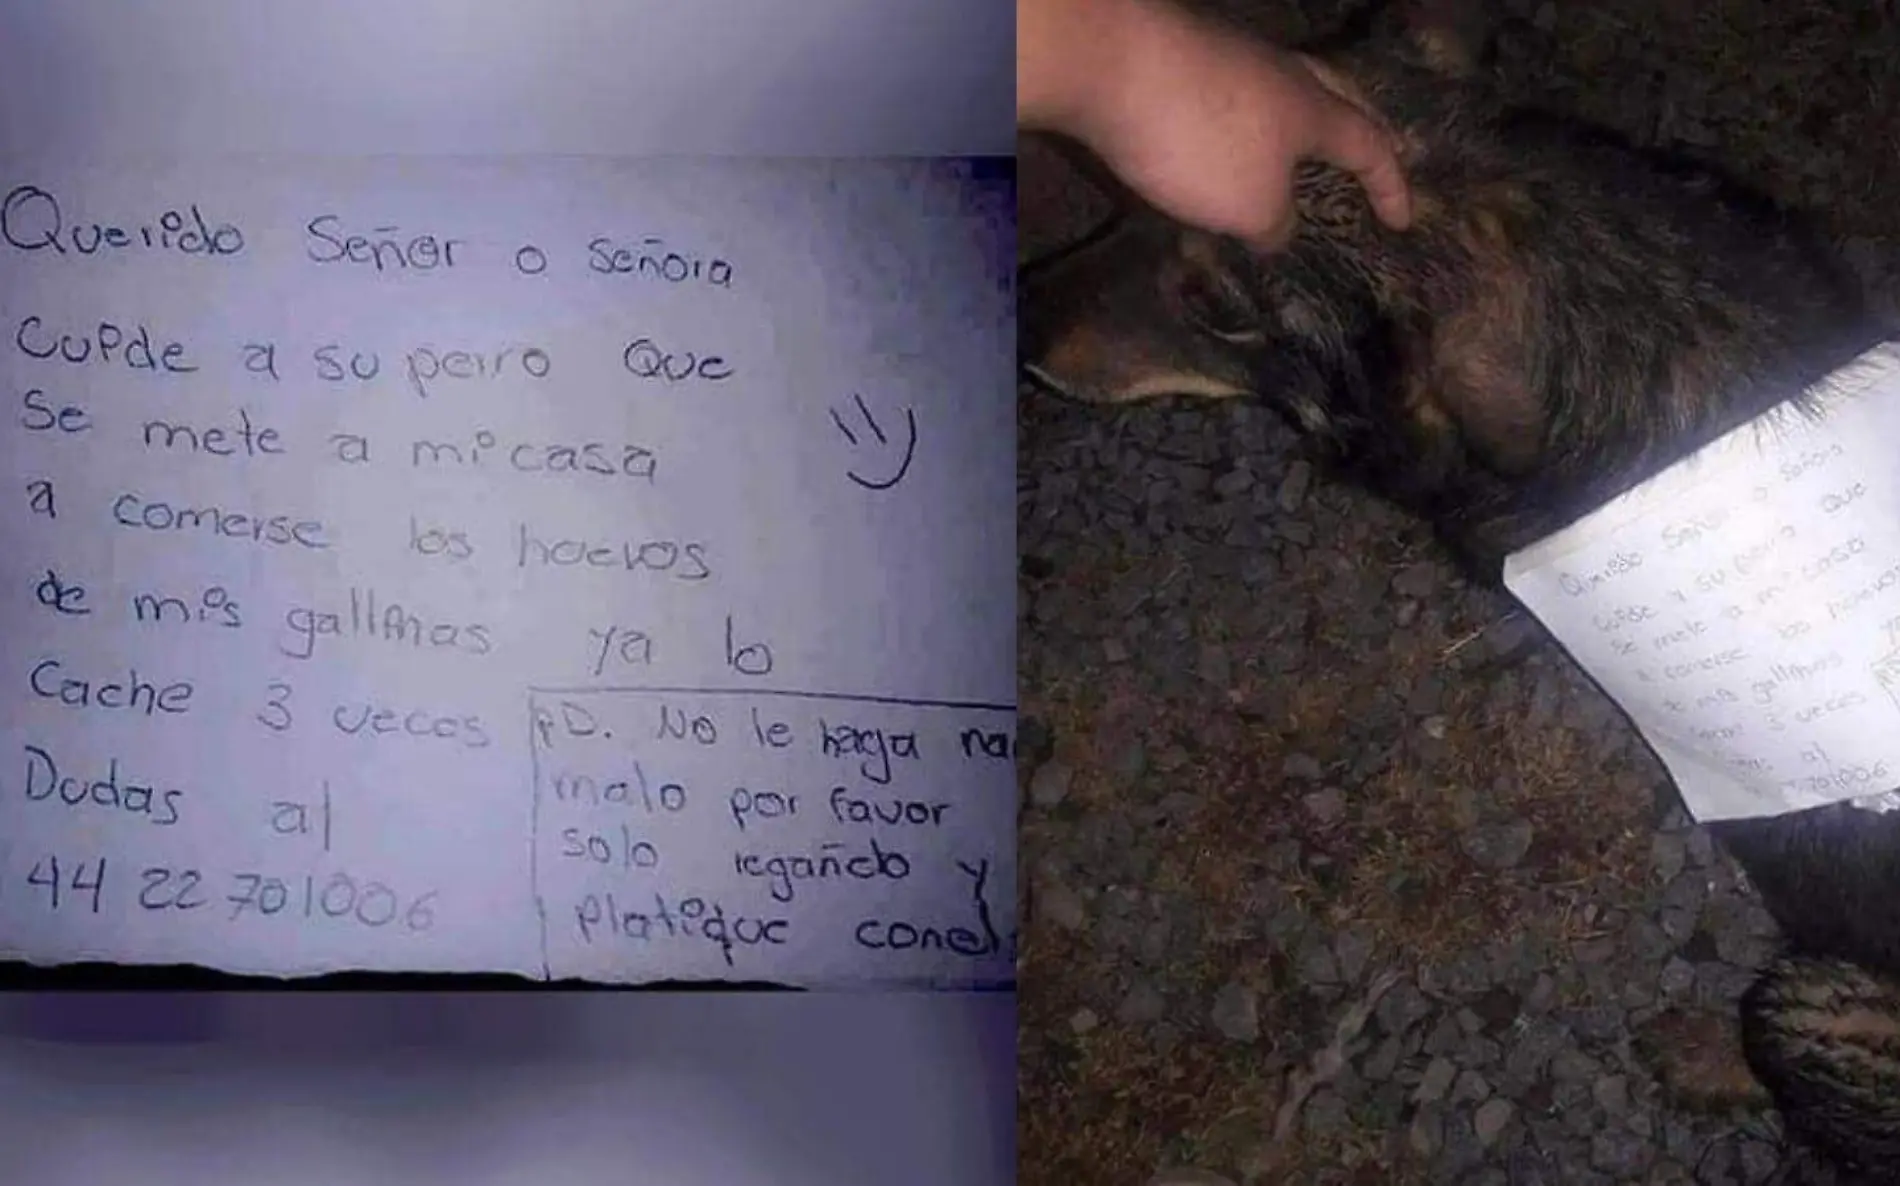 Querido Señor o señora
Cuide a su perro Que
Se mete a mi casa
a comerse los huevos
de mis gallinas ya lo
Cache 3 veces
Dudas al
44 22 701006
PD. No le haga na
malo por favor
solo regañelo y
Platique con el
Querido Señor o Señora
cuide a su perro Que
se mete a mi casa
a comerse los huevos
de mis gallinas
3 veces
al
701006